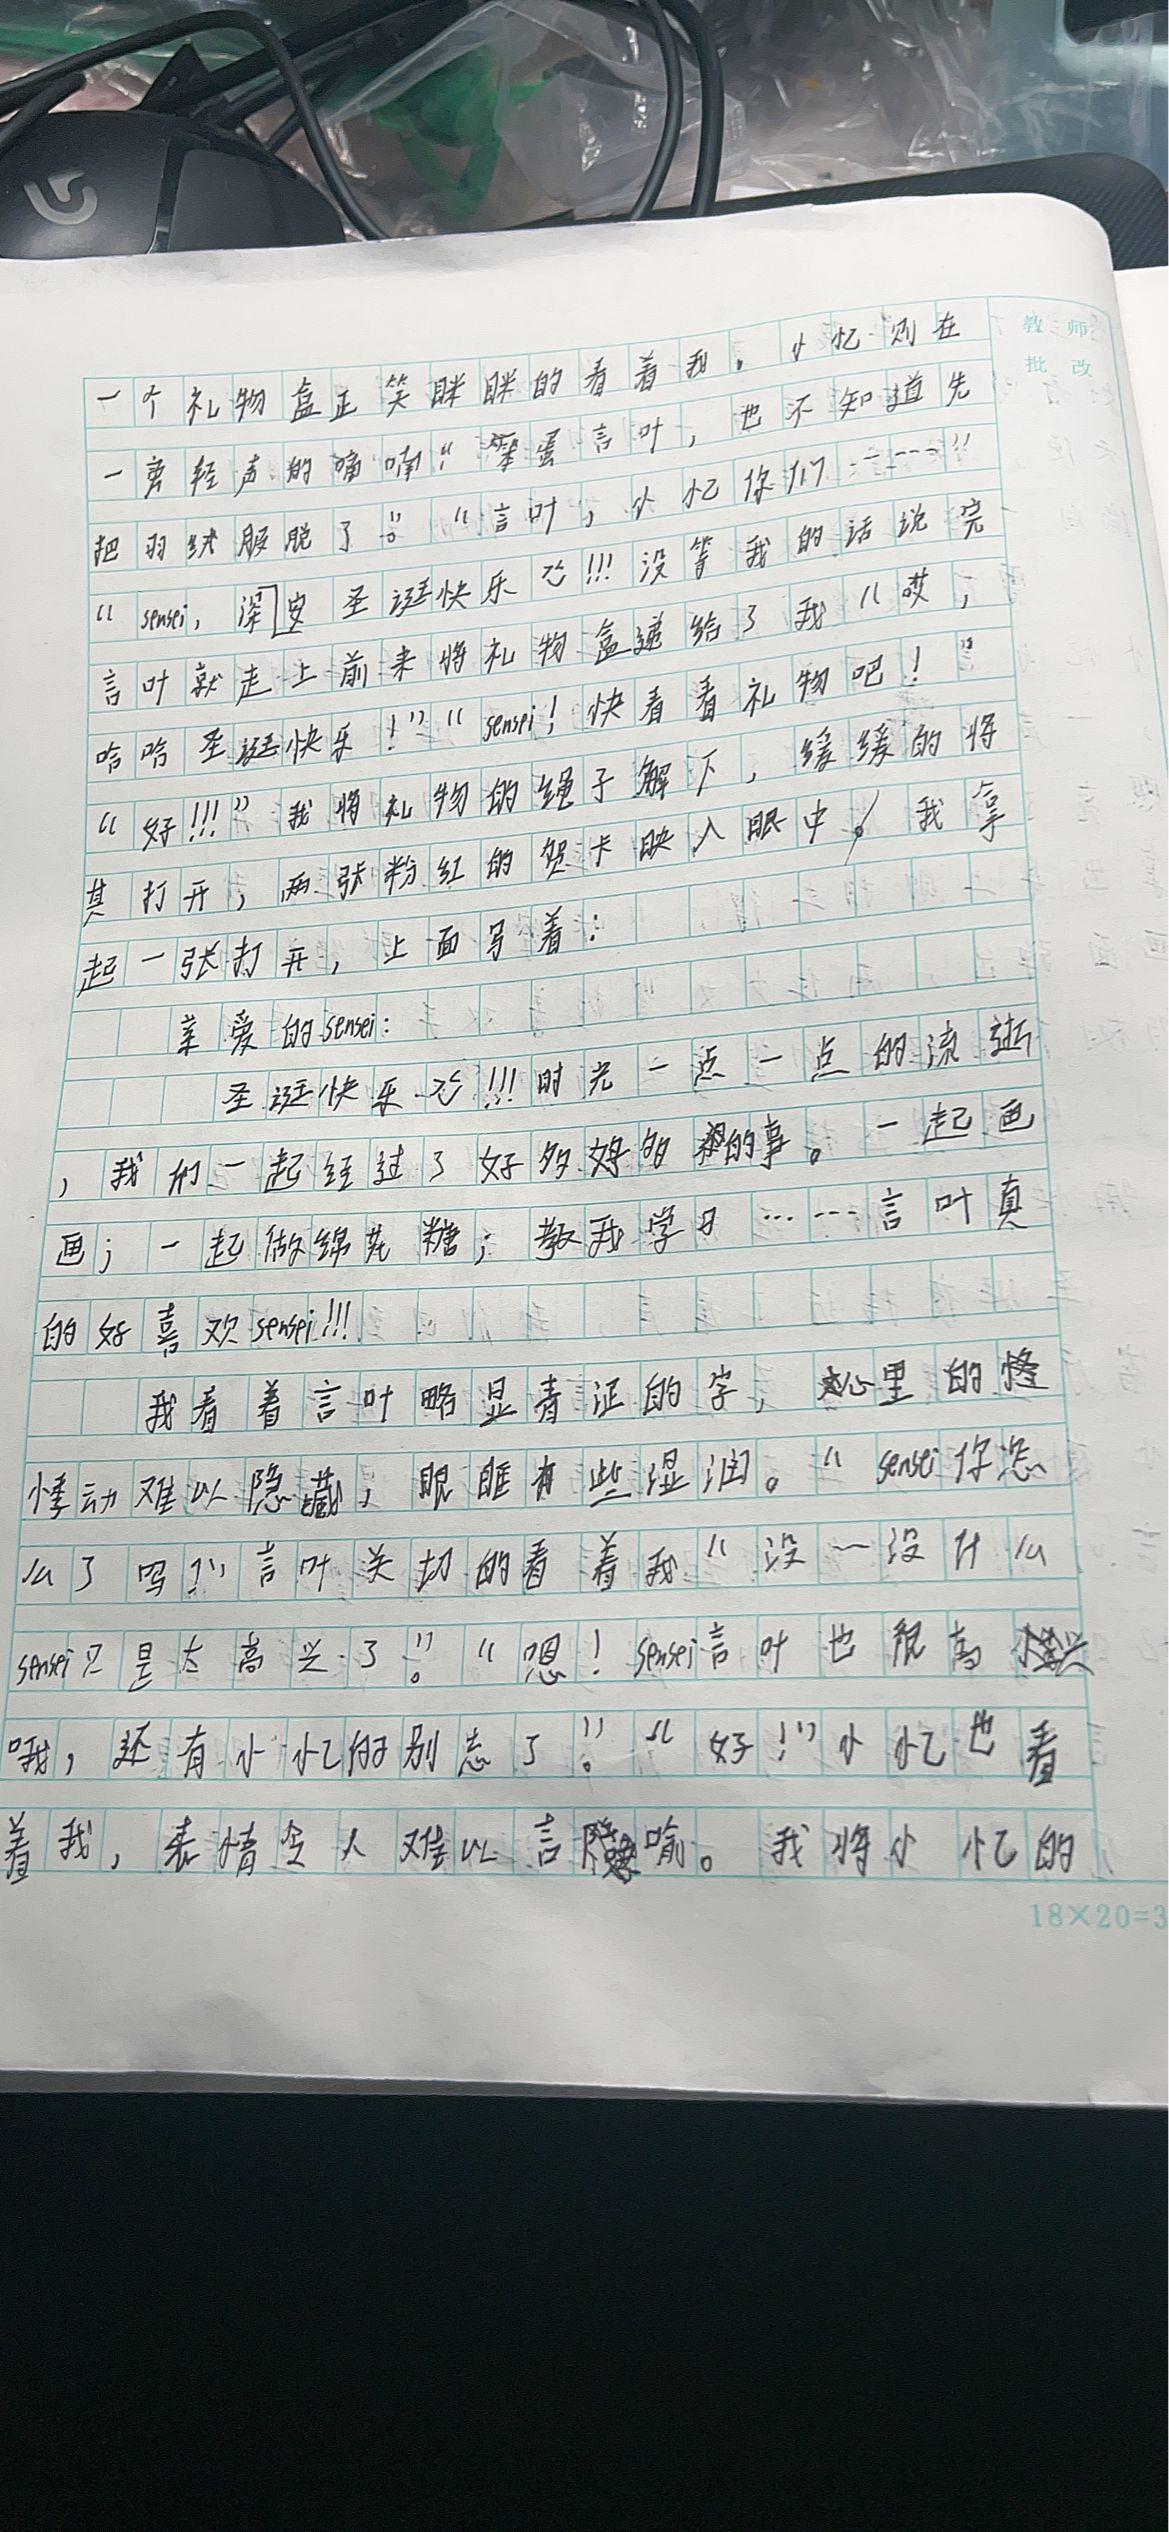 教师
批改
一个礼物盒正笑眯眯的看着我。小忆则在
一旁轻声的喃喃:“笨蛋言叶,也不知道先
把羽绒服脱了。”“言叶,小忆你们……”
“sensei, 圣诞快乐!!!没等我的话说完
言叶就走上前来将礼物盒递给了我“哎,
哈哈圣诞快乐!”“sensei!快看看礼物吧!”
“好!!!”我将礼物的绳子解下,缓缓的将
其打开,两张粉红的贺卡映入眼中。我拿
起一张打开,上面写着:
亲爱的sensei:
圣诞快乐!!!时光一点一点的流逝
,我们一起经过了好多好多的事。一起画
画;一起做绵花糖;教我学日……言叶真
的好喜欢sensei!!!
我看着言叶略显青证的字,心里的
悸动难以隐藏,眼眶有些湿润。“sensei你怎
么了吗?”言叶关切的看着我“没一没什么
sensei只是太高兴了。”“嗯!sensei言叶也很高兴
哦,还有小忆的别忘了。”“好!”小忆也看
着我,表情令人难以言喻。我将小忆的
18×20=3